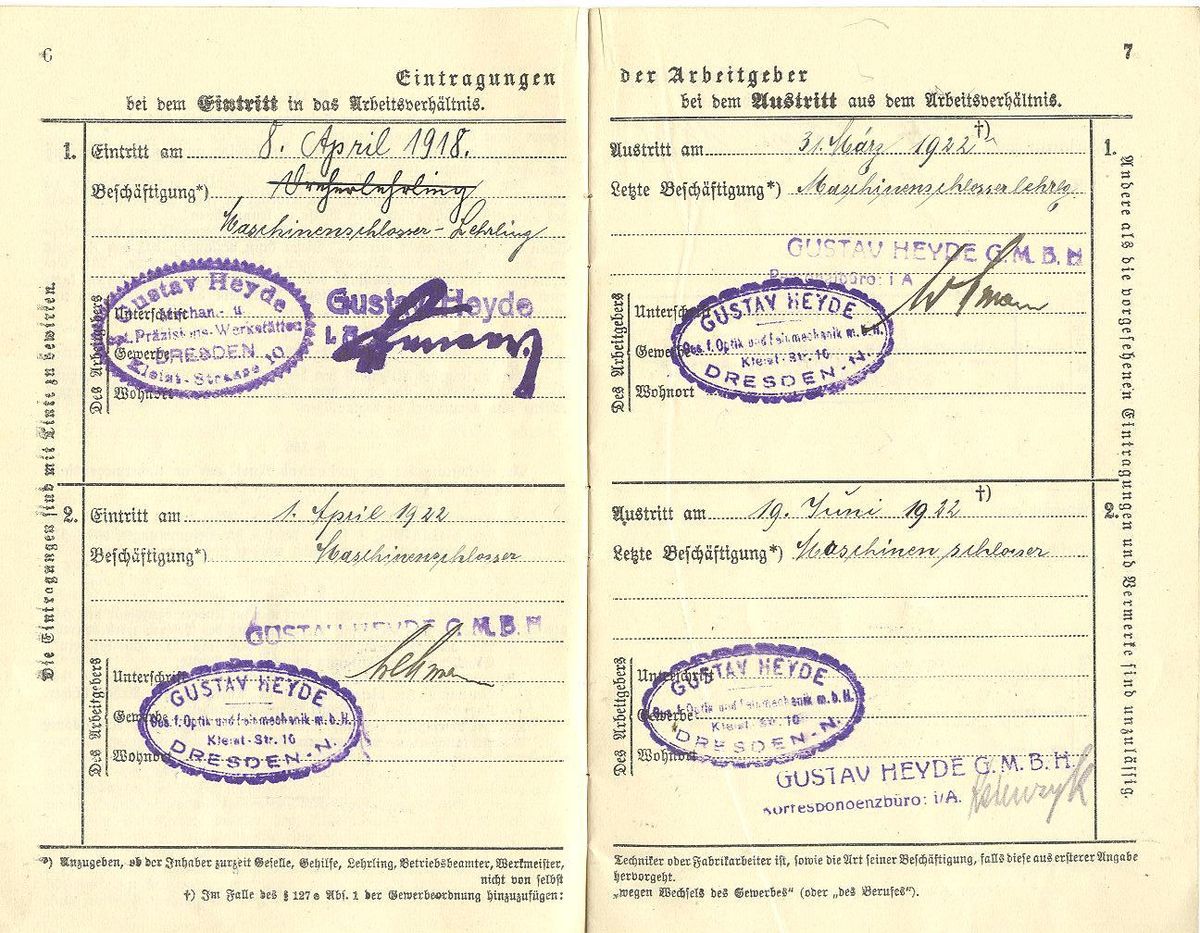 6
Eintragungen
bei dem Eintritt in das Arbeitsverhältnis.
1. Eintritt am 8. April 1918.
Beschäftigung*) Dreherlehrling
Maschinenschlosser-Lehrling
Gustav Heyde
Mechan.- u.
opt. Präzisions-Werkstätten
DRESDEN
Kleist-Strasse 10
Gustav Heyde
Des Arbeitgebers
Unterschrift
Gewerbe
Wohnort
2. Eintritt am 1. April 1922
Beschäftigung*) Maschinenschlosser
GUSTAV HEYDE G.M.B.H
Lehmann
Des Arbeitgebers
Unterschrift
Gewerbe
Wohnort
GUSTAV HEYDE
Ges. f. Optik und Feinmechanik m.b.H.
Kleist-Str. 10
DRESDEN-N.
Die Eintragungen sind mit Tinte zu bewirken.
*) Anzugeben, ob der Inhaber zurzeit Geselle, Gehilfe, Lehrling, Betriebsbeamter, Werkmeister,
nicht von selbst
†) Im Falle des § 127e Abs. 1 der Gewerbeordnung hinzuzufügen:
7
der Arbeitgeber
bei dem Austritt aus dem Arbeitsverhältnis.
Austritt am 31. März 1922 †) 1.
Letzte Beschäftigung*) Maschinenschlosserlehrlg
GUSTAV HEYDE G.M.B.H
i A
Des Arbeitgebers
Unterschrift
Gewerbe
Wohnort
GUSTAV HEYDE
Ges. f. Optik und Feinmechanik m.b.H.
Kleist-Str. 10
DRESDEN-N.
Austritt am 19. Juni 1922 †) 2.
Letzte Beschäftigung*) Maschinenschlosser
Des Arbeitgebers
Unterschrift
Gewerbe
Wohnort
GUSTAV HEYDE
Ges. f. Optik und Feinmechanik m.b.H.
Kleist-Str. 10
DRESDEN-N.
GUSTAV HEYDE G.M.B.H.
Korrespondenzbüro: i/A.
Andere als die vorgesehenen Eintragungen und Vermerke sind unzulässig.
Techniker oder Fabrikarbeiter ist, sowie die Art seiner Beschäftigung, falls diese aus ersterer Angabe
hervorgeht.
„wegen Wechsels des Gewerbes“ (oder „des Berufes“).